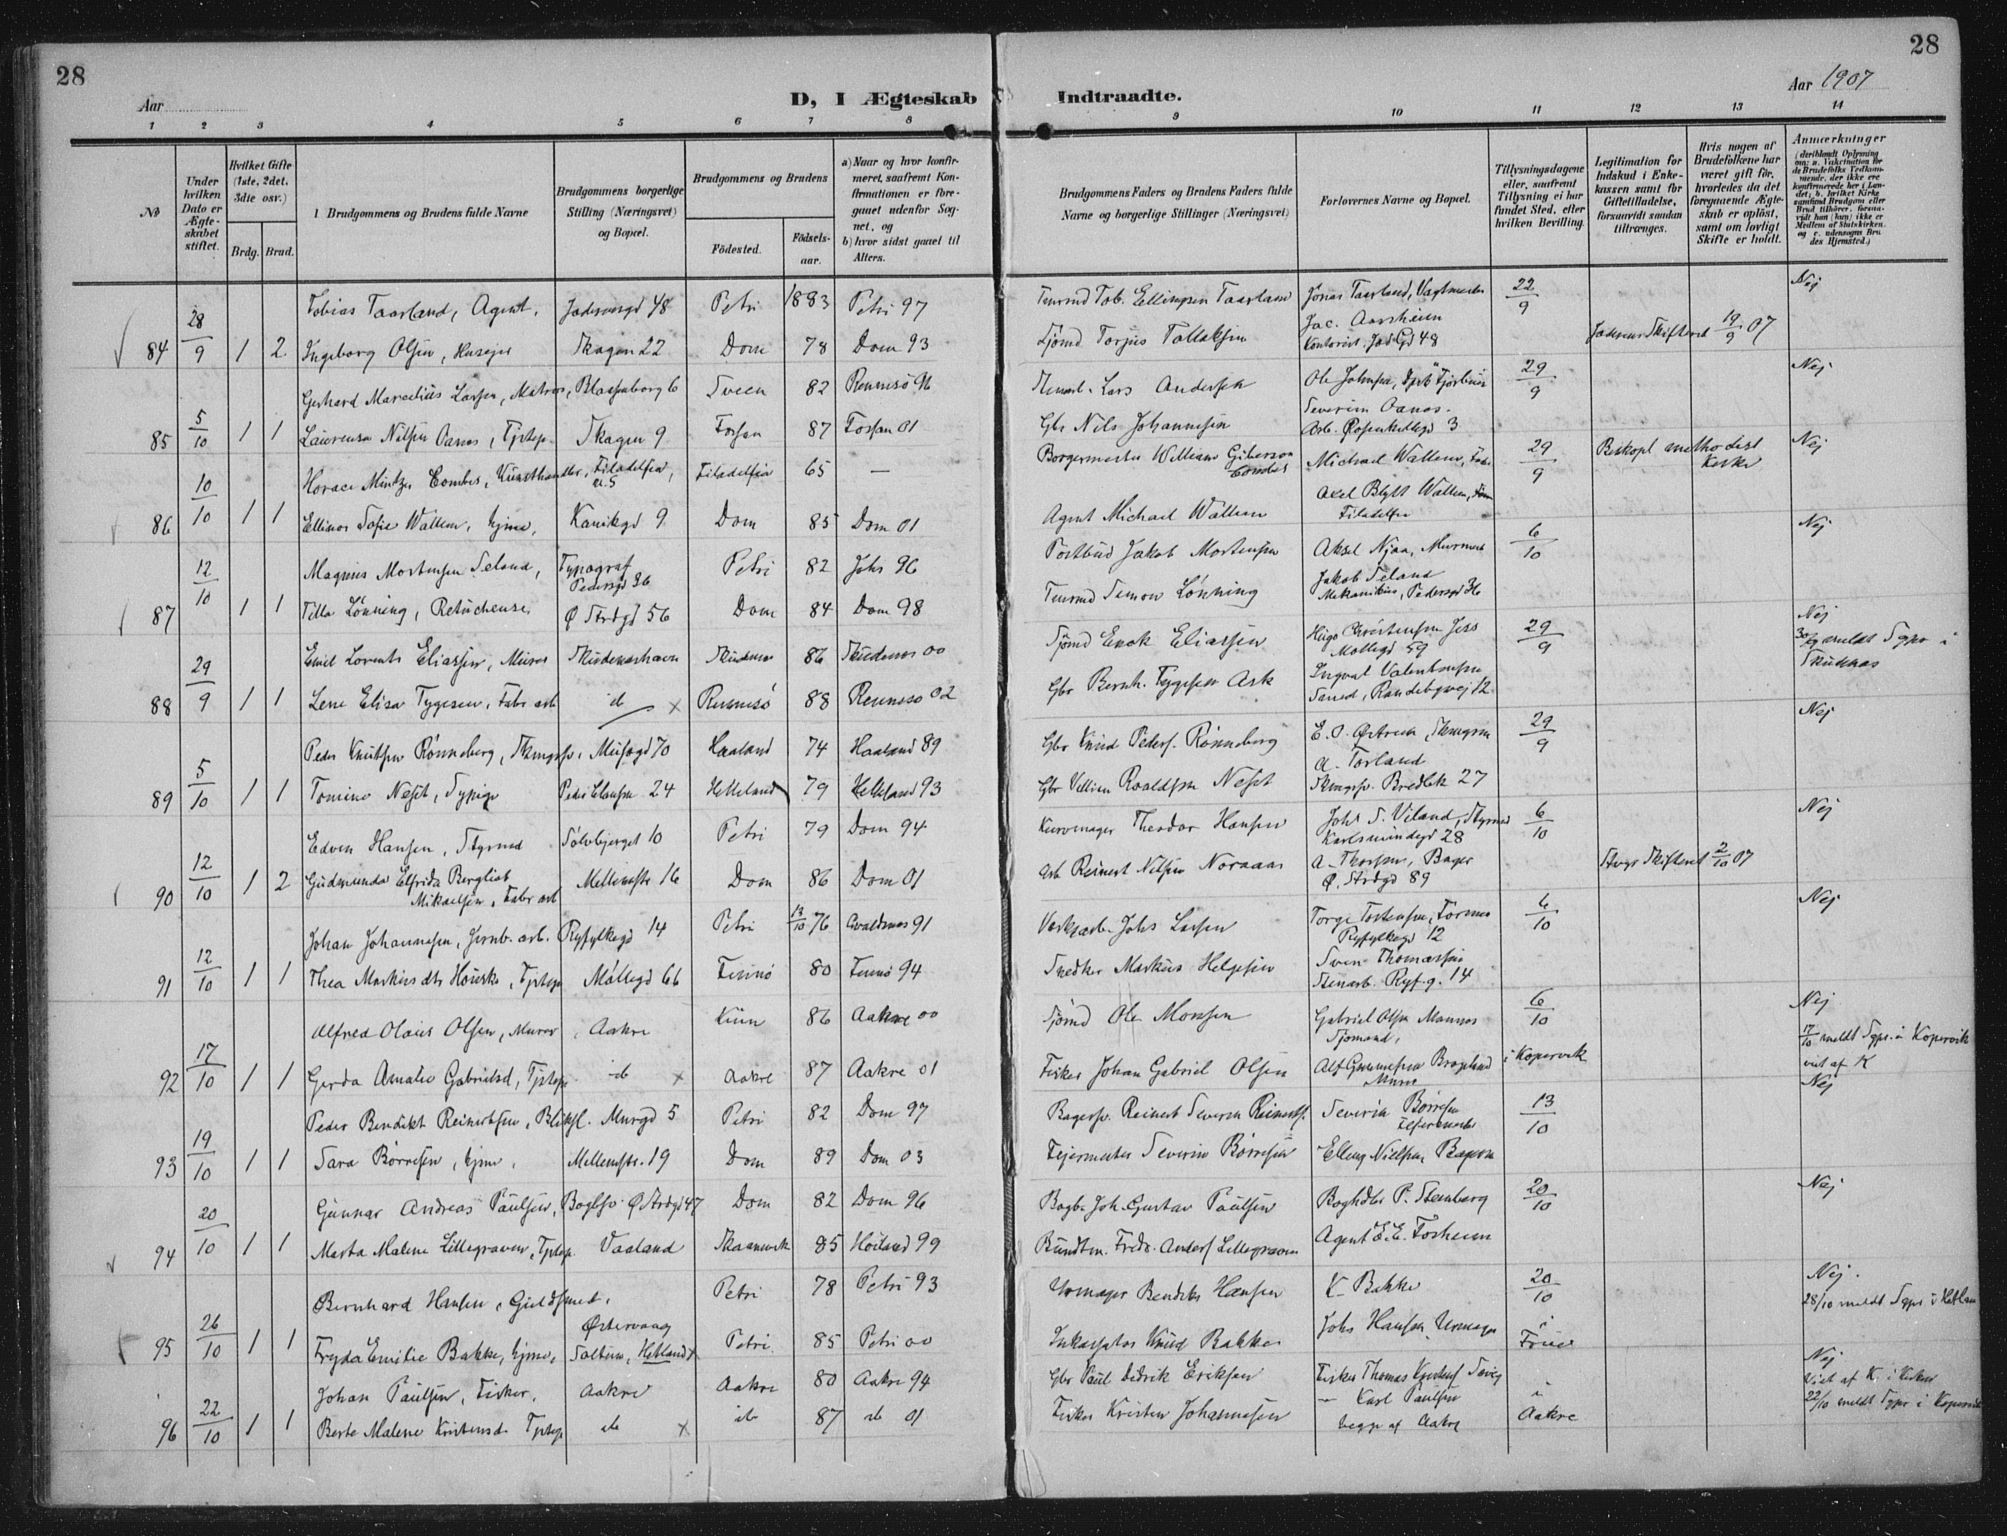 28
28
Aar
D, I Ægteskab Indtraadte.
Aar 1907
1 2 3 4 5 6 7 8 9 10 11 12 13 14
No
Under hvilken Dato er Ægteskabet stiftet.
Hvilket Gifte (1ste, 2det, 3die osv.)
Brdg. Brud.
Brudgommens og Brudens fulde Navne
Brudgommens borgerlige Stilling (Næringsvei) og Bopæl.
Brudgommens og Brudens
Födested.
Födselsaar.
a) Naar og hvor konfirmeret, saafremt Konfirmationen er foregaaet udenfor Sognet, og
b) hvor sidst gaaet til Alters.
Brudgommens Faders og Brudens Faders fulde Navne og borgerlige Stillinger (Næringsvei)
Forlovernes Navne og Bopæl.
Tillysningsdagene eller, saafremt Tillysning ei har fundet Sted, efter hvilken Bevilling.
Legitimation for Indskud i Enkekassen samt for Giftetilladelse, forsaavidt saadan tiltrænges.
Hvis nogen af Brudefolkene har været gift før, hvorledes da det foregaaende Ægteskab er oplöst, samt om lovligt Skifte er holdt.
Anmærkninger
84 28/9 1 2
Tobias Taarland, Agent, Jaderensgd 48 Petri 1883 Petri 97 Tob. Ellingsen Taarland Jonas Taarland, Vagtmester 22/9 Nej
Ingeborg Olsen, Husejer Skagen 22 Dom 78 Dom 93 Sjömd Torjus Tollaksen Jac. Aarsheim Kontorist, Jad.gd 48 Jaderens Skifteret 19/9 07
85 5/10 1 1
Gerhard Marcelius Larsen, Matros, Blaasenborg 6 Sveen 82 Rennesö 96 Lars Andersen Ole Johnsen, 29/9 Nej
Laurensa Nilsen Oanes, Tjptep. Skagen 9 Fossan 87 Fossan 01 Gbr Nils Johannesen Severin Oanes. Arb. Rosenkildegd 3
86 10/10 1 1
Horace Mintzer Combes, Kunsthandler, Filadelfia, Filadelfia 65 — Borgermester William Giberson Combes Michael Wallem, 29/9 Biskopl. methodist Kirke Nej
Ellinor Sofie Wallem, hjme, Kanikgd 9 Dom 85 Dom 01 Agent Michael Wallem Axel Blytt Wallem, Filadelfia
87 12/10 1 1
Magnus Mortensen Seland, Typograf Pedersgd 36 Petri 82 Johs 96 Postbud Jakob Mortensen Aksel Njaa, Murmest 6/10 Nej
Tilla Lönning, Retucheuse, Ø Strdgd 56 Dom 84 Dom 98 Simon Lönning Jakob Seland Mekanikus, Pedersgd 36
88 29/9 1 1
Emil Lorents Eliassen, Murer Skudeneshavn Skudenes 86 Skudenes 00 Sjömd Enok Eliassen Hugo Christensen Jess Mollegd 59 29/9 Nej
30/9 meldt Sgpr i Skudenes
Lene Elisa Tygesen, Fabr arb do x Rennesö 88 Rennesö 02 Gbr Bernh. Tygesen Ask Ingval Valentinsen Randebgvej 12
89 5/10 1 1
Peder Knutsen Rönneberg, Skmgsv, Musegd 70 Haaland 74 Haaland 89 Gbr Knud Peders. Rönneberg E. O. Østrem, 29/9 Nej
Tomine Neset, Sypige Peder Clausgd 24 Helleland 79 Helleland 93 Gbr Villum Roaldsen Neset A. Torland Bredbk 27
90 12/10 1 2
Edven Hansen, Styrmd Sölvbjerget 10 Petri 79 Dom 94 Kurvmager Theodor Hansen Johs S. Viland, Styrmd Karlsmindegd 28 6/10 Nej
Gudmunda Elfrida Bergliot Mikaelsen, Fabr arb Mellemstr 16 Dom 86 Dom 01 Arb Reinert Nilsen Noraaas A. Thorsen, Bager Ø. Strdgd 89 Stvgr Skifteret 2/10 07
91 12/10 1 1
Johan Johannesen, Jernb. arb. Ryfylkegd 14 Petri 13/10 76 Avaldsnes 91 Johs Larsen Torge Tostensen, Ryfylkegd 12 6/10 Nej
Thea Markusdtr Houske, Tjptep Möllegd 66 Finnö 80 Finnö 94 Snedker Markus Helgesen Sven Thomassen Stenarb. Ryf.g. 14
92 17/10 1 1
Alfred Olaus Olsen, Murer, Aakre Kinn 86 Aakre 00 Sjömd Ole Monsen Gabriel Olsen Mannes Sjömand, 6/10 Nej
17/10 meldt Sgpr. i Kopervik
Gerda Amalie Gabrielsd, Tjptep do x Aakre 87 Aakre 01 Fisker Johan Gabriel Olsen Alf Gunnesen Bragland Murer i Kopervik viet af K
93 19/10 1 1
Peder Bendikt Reinertsen, Bliksl. Murgd 5 Petri 82 Dom 97 Bagersv. Reinert Severin Reinertsen Severin Börresen Fejermester 13/10 Nej
Sara Börresen, hjme, Mellemstr. 19 Dom 89 Dom 03 Fejermester Severin Börresen Elling Nielsen Bagersv
94 20/10 1 1
Gunnar Andreas Paulsen, Bogbsv. Ø Strdgd 47 Dom 82 Dom 96 Bogb. Joh. Gustav Paulsen Boghdlr P. Stenberg 20/10 Nej
Marta Malene Lillegraven, Tjptep. Vaaland Skaanevik 85 Höiland 99 Bundtm. Fredr. Anders Lillegraven Agent E. E. Forheim
95 26/10 1 1
Bernhard Hansen, Guldsmed, Østervaag Petri 78 Petri 93 Urmager Bendiks Hansen K. Bakke 20/10 Nej.
28/10 meldt Sgpr i Hetland
Fryda Emilie Bakke, hjme, Saltun, Hetland x Petri 85 Petri 00 Inkassator Knud Bakke Johs Hansen, Urmager i Frue
96 22/10 1 1
Johan Paulsen, Fisker, Aakre Aakre 80 Aakre 94 Gbr Paul Didrik Eriksen Fisker Thomas Knudsen Sevig Nej
Viet af K. i Kirken
22/10 meldt Sgpr i Kopervik
Berte Malene Kristensd. Tjptep do x do 87 do 01 Fisker Kristen Johannesen — Karl Paulsen begge af Aakre i Aakre